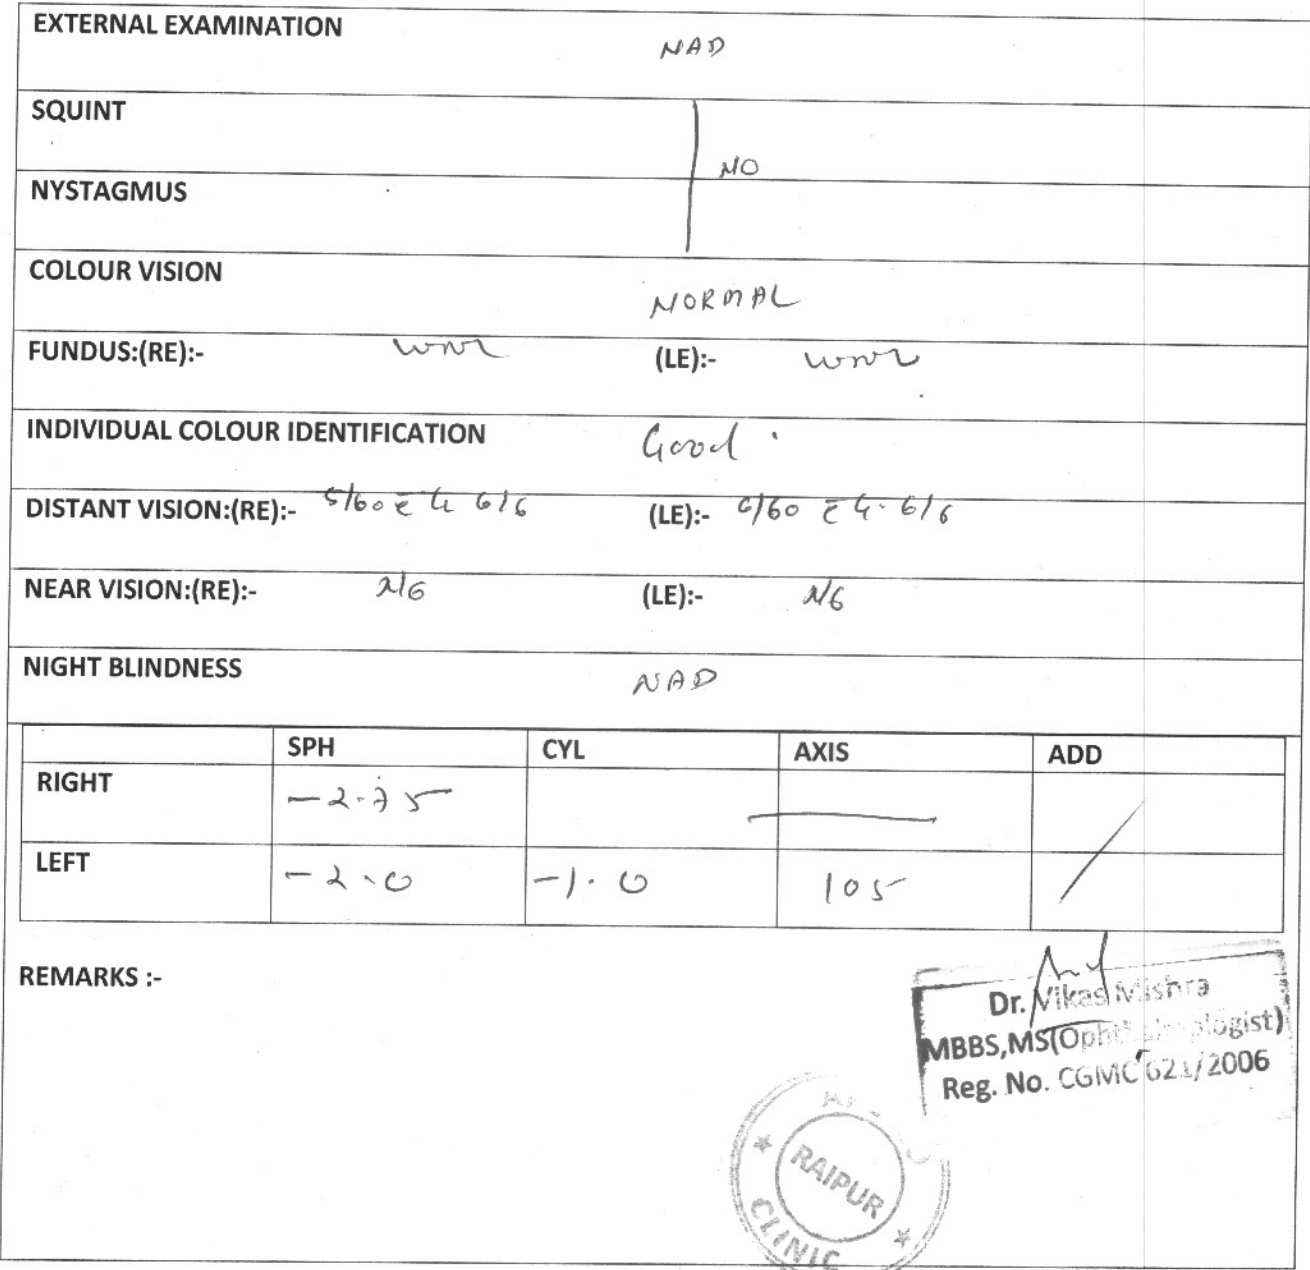 EXTERNAL EXAMINATION NAD
SQUINT
NO
NYSTAGMUS
COLOUR VISION NORMAL
FUNDUS:(RE):- WNL (LE):- WNL
INDIVIDUAL COLOUR IDENTIFICATION Good
DISTANT VISION:(RE):- /60 c̄ 6/6 (LE):- 6/60 c̄ 6/6
NEAR VISION:(RE):- N/6 (LE):- N/6
NIGHT BLINDNESS NAD
SPH CYL AXIS ADD
RIGHT -2.75
LEFT -2.0 -1.0 105
REMARKS :-
Dr. Vikas Mishra
MBBS,MS(Ophthalmologist)
Reg. No. CGMC 621/2006
RAIPUR
CLINIC